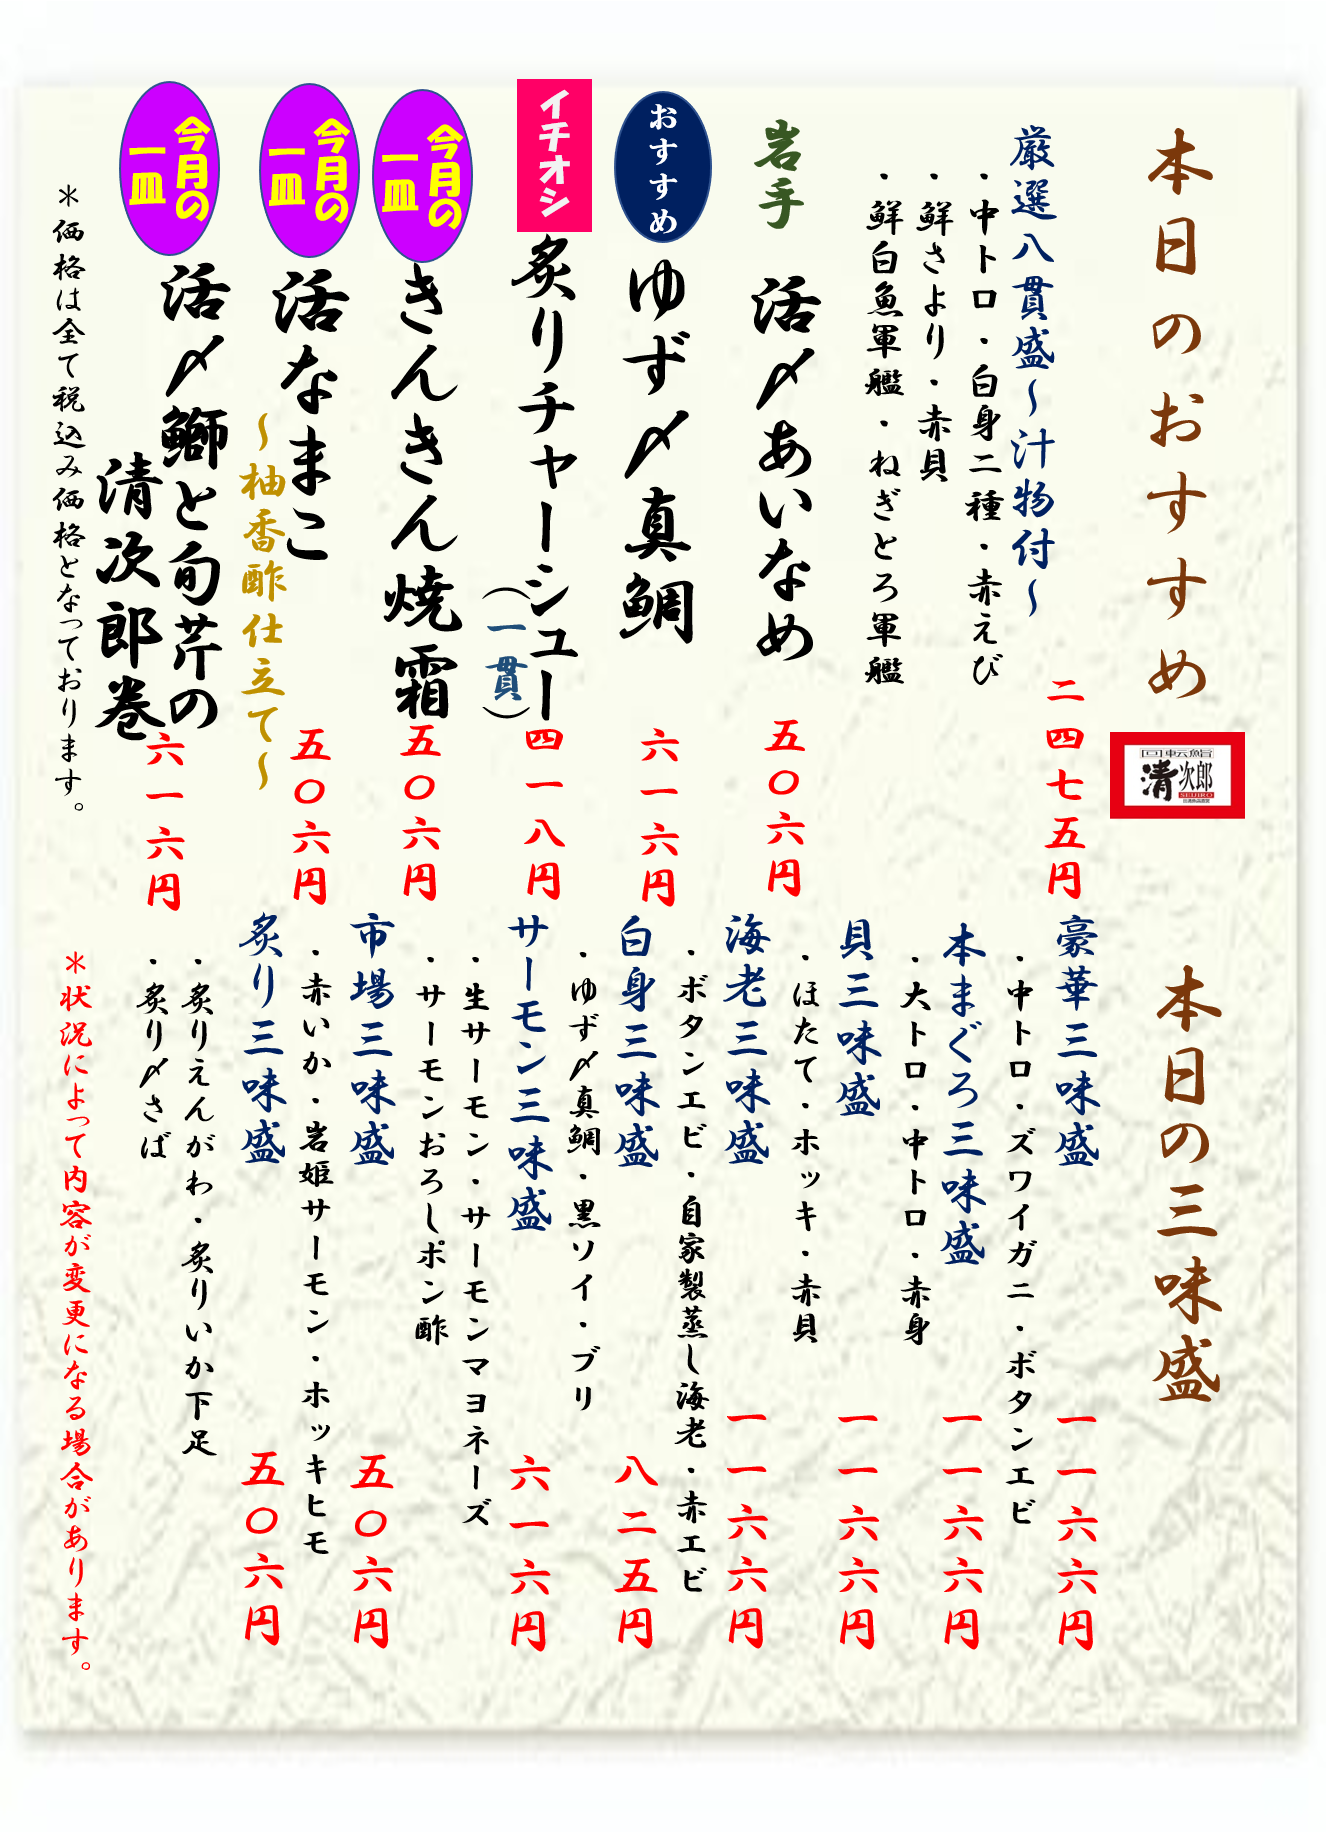 本日のおすすめ
厳選八貫盛～汁物付～
二四七五円
・中トロ・白身二種・赤えび
・鮮さより・赤貝
・鮮白魚軍艦・ねぎとろ軍艦
岩手
活〆あいなめ
五〇六円
おすすめ
ゆず〆真鯛
六一六円
イチオシ
炙りチャーシュー
（一貫）
四一八円
今月の
一皿
きんきん焼霜
五〇六円
今月の
一皿
活なまこ
～柚香酢仕立て～
五〇六円
今月の
一皿
活〆鰤と旬芹の
清次郎巻
六一六円
＊価格は全て税込み価格となっております。
回転鮨
清次郎
SEIJIRO
本日の三味盛
豪華三味盛
一一六六円
・中トロ・ズワイガニ・ボタンエビ
本まぐろ三味盛
一一六六円
・大トロ・中トロ・赤身
貝三味盛
一一六六円
・ほたて・ホッキ・赤貝
海老三味盛
一一六六円
・ボタンエビ・自家製蒸し海老・赤エビ
白身三味盛
八二五円
・ゆず〆真鯛・黒ソイ・ブリ
サーモン三味盛
六一六円
・生サーモン・サーモンマヨネーズ
・サーモンおろしポン酢
市場三味盛
五〇六円
・赤いか・岩姫サーモン・ホッキヒモ
炙り三味盛
五〇六円
・炙りえんがわ・炙りいか下足
・炙り〆さば
＊状況によって内容が変更になる場合があります。